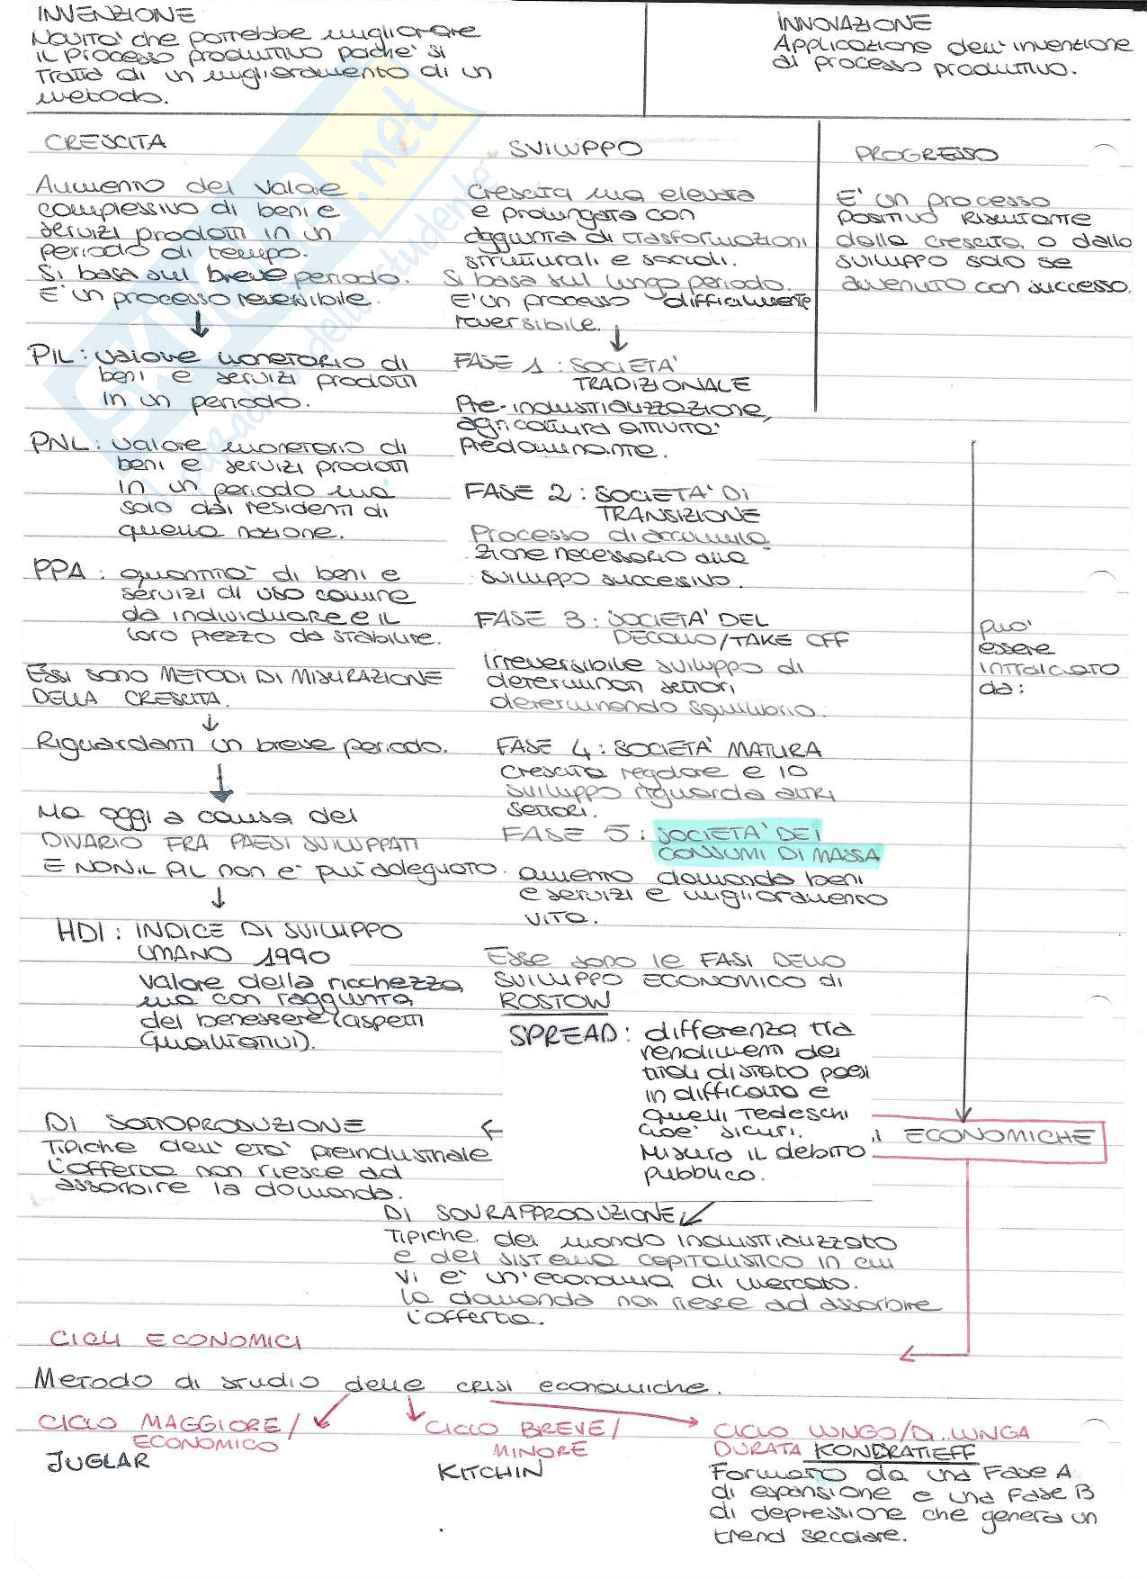 INVENZIONE
NOVITA' che potrebbe migliorare
il processo produttivo poiché si
tratta di un miglioramento di un
metodo.
INNOVAZIONE
Applicazione dell'invenzione
di processo produttivo.
CRESCITA
Aumento del valore
complessivo di beni e
servizi prodotti in un
periodo di tempo.
Si basa sul breve periodo.
E' un processo reversibile.
PIL: valore monetario di
beni e servizi prodotti
in un periodo.
PNL: valore monetario di
beni e servizi prodotti
in un periodo ma
solo dai residenti di
quella nazione.
PPA: quantità di beni e
servizi di uso comune
da individuare e il
loro prezzo da stabilire.
ESSI SONO METODI DI MISURAZIONE
DELLA CRESCITA.
Riguardanti un breve periodo.
Ma oggi a causa del
DIVARIO FRA PAESI SVILUPPATI
E NON il PIL non è più adeguato.
HDI: INDICE DI SVILUPPO
UMANO 1990
valore della ricchezza
ma con l'aggiunta
del benessere (aspetti
qualitativi).
SVILUPPO
Crescita ma elevata
e prolungata con
aggiunta di trasformazioni
strutturali e sociali.
Si basa sul lungo periodo.
E' un processo difficilmente
reversibile.
FASE 1: SOCIETA'
TRADIZIONALE
Pre-industrializzazione,
agricoltura attività
predominante.
FASE 2: SOCIETA' DI
TRANSIZIONE
Processo di accumula
zione necessario allo
sviluppo successivo.
FASE 3: SOCIETA' DEL
DECOLLO/TAKE OFF
Irreversibile sviluppo di
determinati settori,
determinando squilibrio.
FASE 4: SOCIETA' MATURA
Crescita regolare e lo
sviluppo riguarda altri
settori.
FASE 5: SOCIETA' DEI
CONSUMI DI MASSA
aumento domanda beni
e servizi e miglioramento
vita.
Esse sono le FASI DELLO
SVILUPPO ECONOMICO di
ROSTOW
SPREAD: differenza tra
rendimenti dei
titoli di stato paesi
in difficoltà e
quelli tedeschi
cioè sicuri.
Misura il debito
pubblico.
PROGRESSO
E' un processo
positivo risultante
dalla crescita o dallo
sviluppo solo se
avvenuto con successo.
può
essere
intralciato
da:
I ECONOMICHE
DI SOTTOPRODUZIONE
Tipiche dell'età preindustriale
l'offerta non riesce ad
assorbire la domanda.
DI SOVRAPPRODUZIONE
Tipiche del mondo industrializzato
e del sistema capitalistico in cui
vi è un'economia di mercato.
la domanda non riesce ad assorbire
l'offerta.
CICLI ECONOMICI
Metodo di studio delle crisi economiche.
CICLO MAGGIORE/
ECONOMICO
JUGLAR
CICLO BREVE/
MINORE
KITCHIN
CICLO LUNGO/DI LUNGA
DURATA KONDRATIEFF
Formato da una Fase A
di espansione e una Fase B
di depressione che genera un
trend secolare.